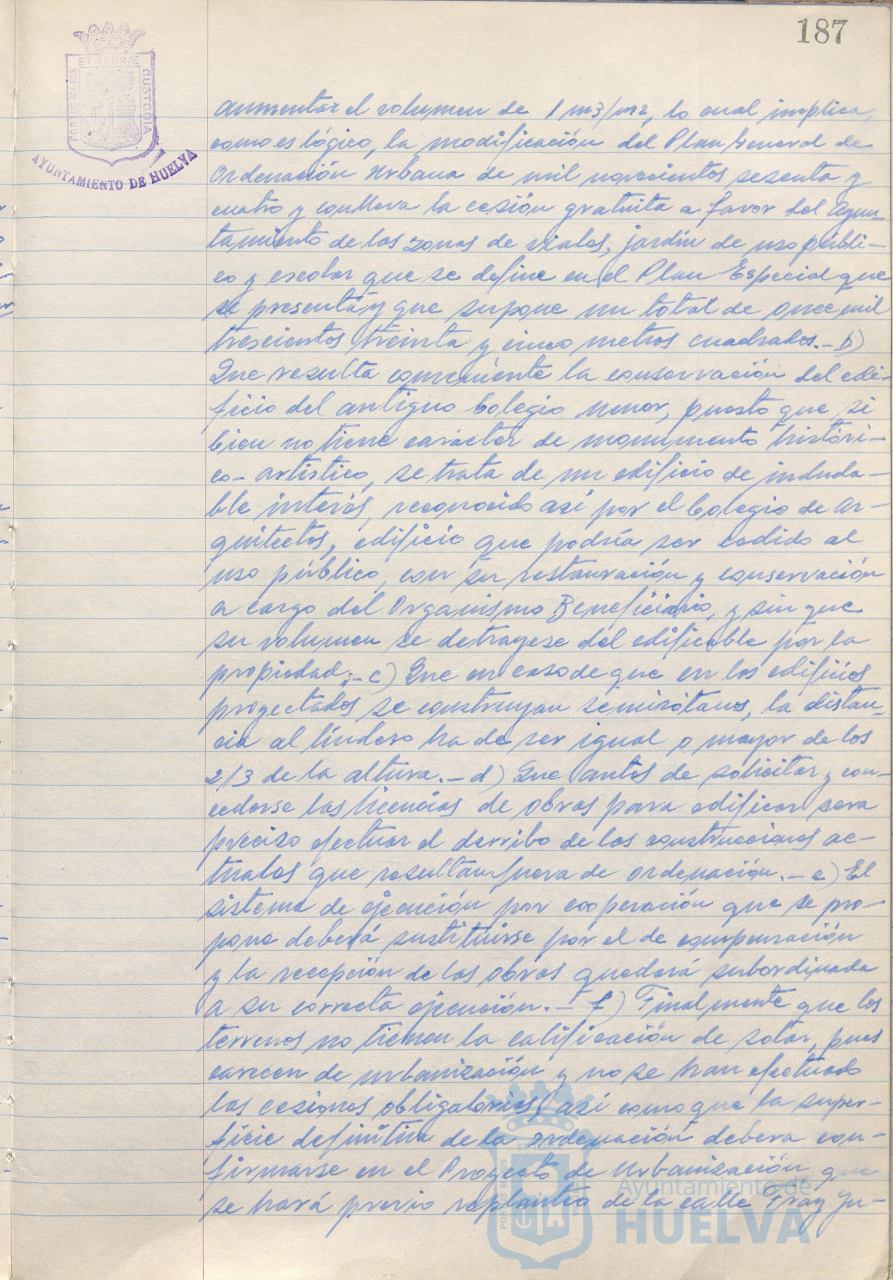 187
PORTUS MARIS ET TERRÆ CUSTODIA
AYUNTAMIENTO DE HUELVA
aumentar el volumen de 1 m3/m2, lo cual implica,
como es lógico, la modificación del Plan General de
Ordenación Urbana de mil novecientos sesenta y
cuatro y conlleva la cesión gratuita a favor del Ayun-
tamiento de las zonas de viales, jardín de uso públi-
co y escolar que se define en el Plan Especial que
se presenta y que supone un total de once mil
trescientos treinta y cinco metros cuadrados.- b)
Que resulta conveniente la conservación del edi-
ficio del antiguo Colegio Menor, puesto que si
bien no tiene carácter de monumento históri-
co-artístico, se trata de un edificio de induda-
ble interés, reconocido así por el Colegio de Ar-
quitectos, edificio que podría ser cedido al
uso público, con su restauración y conservación
a cargo del Organismo Beneficiario, y sin que
su volumen se detrayese del edificable por la
propiedad;- c) Que en caso de que en los edificios
proyectados se construyan semisótanos, la distan-
cia al lindero ha de ser igual o mayor de los
2/3 de la altura.- d) Que antes de solicitar y con-
cederse las licencias de obras para edificar sera
preciso efectuar el derribo de las construcciones ac-
tuales que resultan fuera de ordenación.- e) El
sistema de ejecución por cooperación que se pro-
pone deberá sustituirse por el de compensación
y la recepción de las obras quedará subordinada
a su correcta ejecución.- f) Finalmente que los
terrenos no tienen la calificación de solar, pues
carecen de urbanización y no se han efectuado
las cesiones obligatorias, así como que la super-
ficie definitiva de la ordenación debera con-
firmarse en el Proyecto de Urbanización, que
se hará previo replanteo de la calle Fray Ju-
Ayuntamiento de
HUELVA